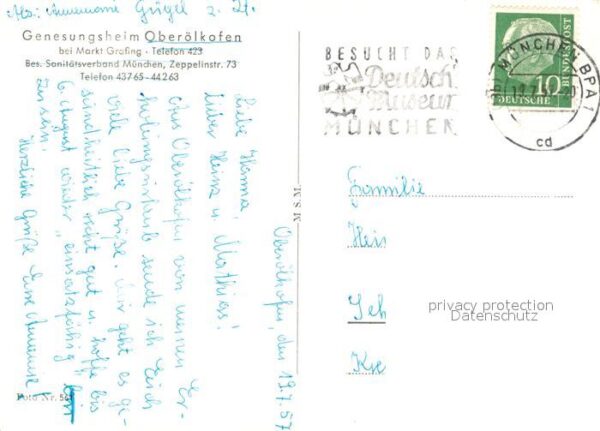 Abs: Annemarie Gügel z. Zt.
Genesungsheim Oberölkofen
bei Markt Grafing · Telefon 423
Bes. Sanitätsverband München, Zeppelinstr. 73
Telefon 43765 - 44263
Oberölkofen, den 19.7.57
Liebe Hanna,
lieber Heinz u. Mathias!
Aus Oberölkofen von meinem Er-
holungsurlaub sende ich Euch
viele liebe Grüße. Mir geht es ge-
sundheitlich recht gut u. hoffe bis
6. August wieder „einsatzfähig" zu
sein.
Herzliche Grüße Eure Annemarie
Foto Nr. 56
M.S.M.
BESUCHT DAS
Deutsche
Museum
MÜNCHEN
MÜNCHEN BPA 1
cd
10
DEUTSCHE
BUNDESPOST
Familie
Hein
Seh
Kre
privacy protection
Datenschutz